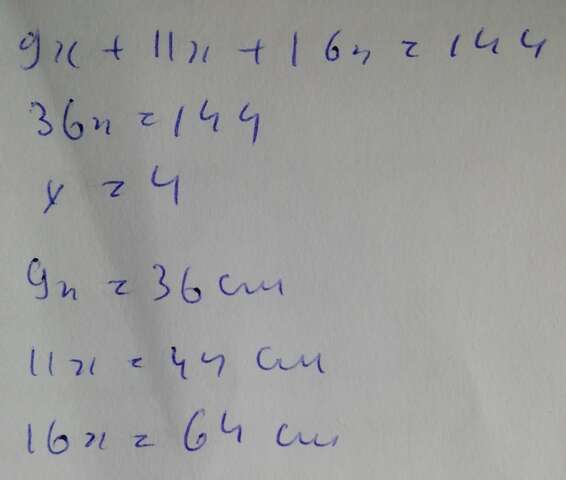 9x + 11x + 16x = 144
36x = 144
x = 4
9x = 36 cm
11x = 44 cm
16x = 64 cm